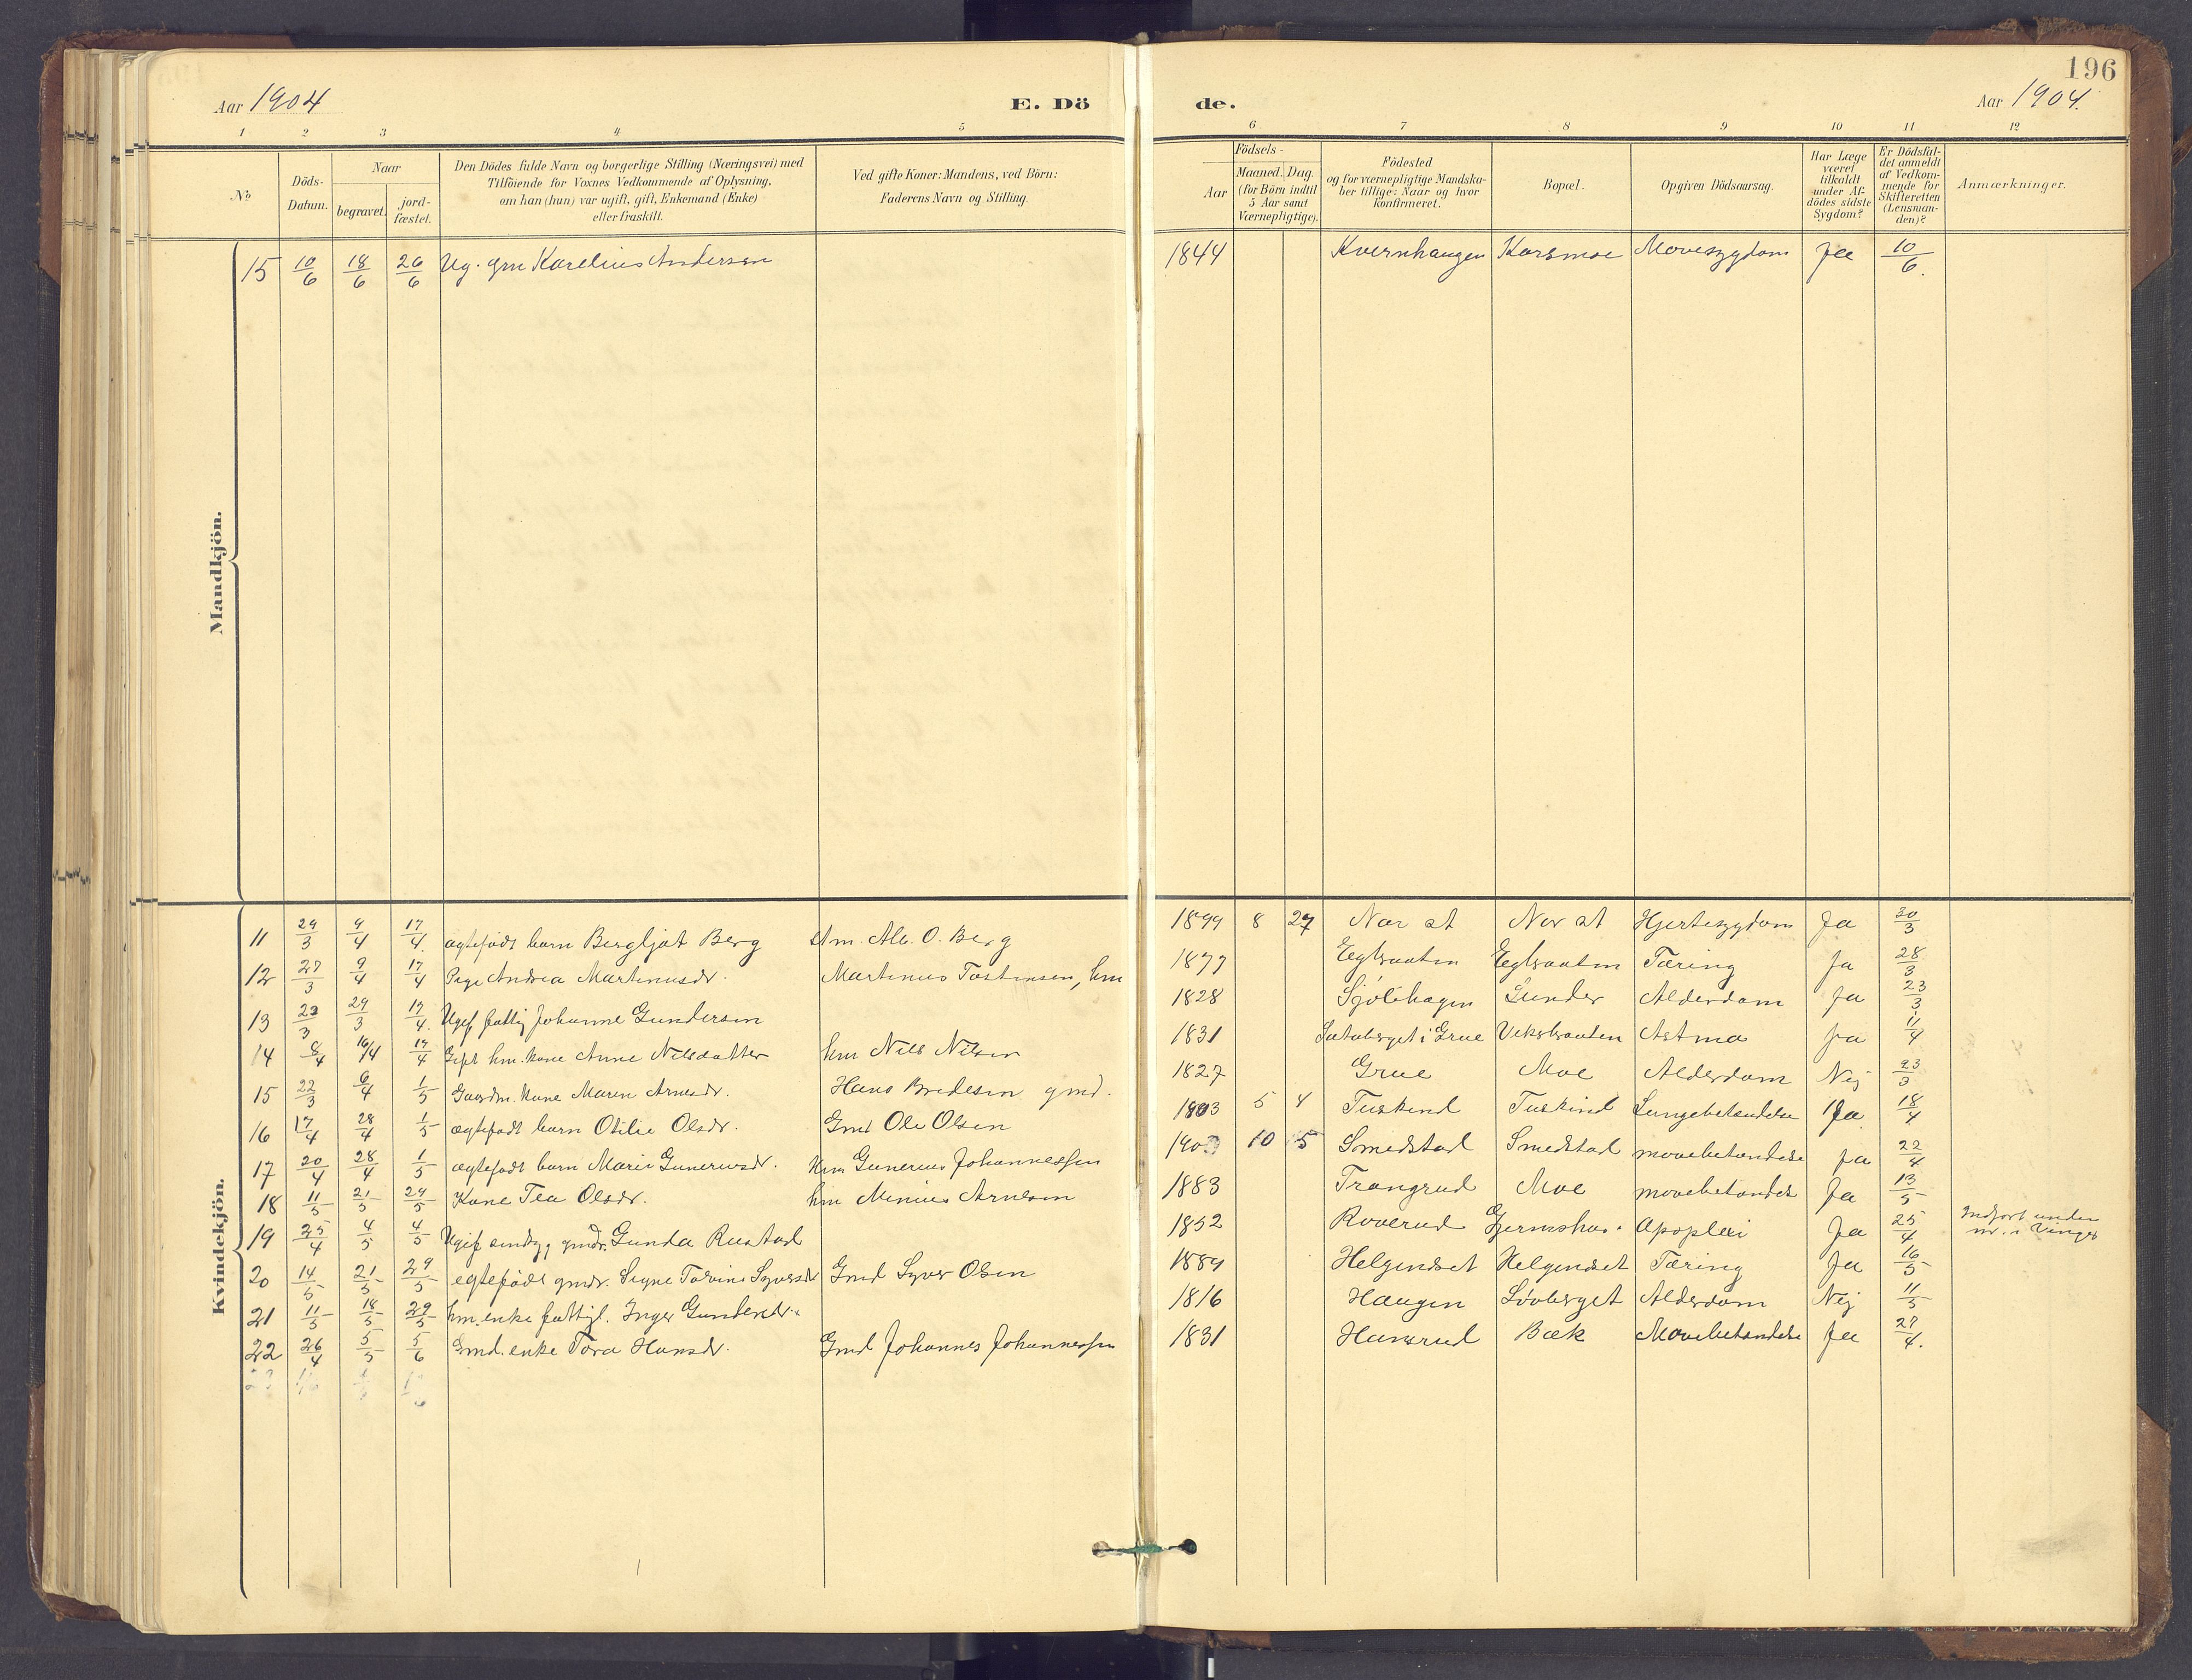 196
Aar 1904
E. Dö
de.
Aar 1904.
1 2 3 4 5 6 7 8 9 10 11 12
No
Döds-Datum.
Naar
begravet.
jord-fæstet.
Den Dödes fulde Navn og borgerlige Stilling (Næringsvei) med
Tilföiende for Voxnes Vedkommende af Oplysning,
om han (hun) var ugift, gift, Enkemand (Enke)
eller fraskilt.
Ved gifte Koner: Mandens, ved Börn:
Faderens Navn og Stilling.
Födsels-
Aar
Maaned.
Dag.
(for Börn indtil
5 Aar samt
Værnepligtige).
Födested
og for værnepligtige Mandska-
ber tillige: Naar og hvor
konfirmeret.
Bopæl.
Opgiven Dödsaarsag.
Har Læge
været
tilkaldt
under Af-
dödes sidste
Sygdom?
Er Dödsfal-
det anmeldt
af Vedkom-
mende for
Skifteretten
(Lensman-
den)?
Anmærkninger.
Mandkjön.
15 10/6 18/6 26/6 Ug. gm Karelius Andersen 1844 Kvernhaugen Korsmoe Mavesygdom Ja 10/6.
Kvindekjön.
11 29/3 9/4 17/4. ægtefødt barn Bergljot Berg Alb. O. Berg 1899 8 27 Nor st Nor st Hjertesygdom Ja 30/3
12 27/3 9/4 17/4 Pige Andrea Martinusdr. Martinus Tostensen, hm 1877 Eglsaaten Eglsaaten Tæring Ja 28/3
13 22/3 29/3 17/4. Ugif fattig Johanne Gundersen 1828 Sjølihagen Gunder Alderdom Ja 23/3
14 8/4 16/4 17/4 Gift hm. kone Anne Nilsdatter hm Nils Nilsen 1831 i Grue Astma Ja 11/4
15 22/3 6/4 1/5 Gaardm. kone Maren Arnesdr. Hans Bredesen gmd. 1827 Grue Moe Alderdom Nej 23/3
16 17/4 28/4 1/5 ægtefødt barn Otilie Olsdr. Gmd Ole Olsen 1903 5 4 Tuskind Tuskind Lungebetændelse Ja 18/4
17 20/4 28/4 1/5 ægtefødt barn Marie Gunerusdr. Hm Gunerius Johannessen 1903 10 5 Smedstad Smedstad mavebetændelse Ja 22/4
18 11/5 21/5 29/5 Kone Tea Olsdr. hm Menius Arnesen 1883 Trangrud Moe mavebetændelse Ja 13/5
19 25/4 4/5 4/5 Ugift sindsyg, gmdr. Gunda Rustad 1852 Roverud Gjermshus. Apoplexi Ja 25/4 Indført under nr. i Vinger
20 14/5 21/5 29/5 egtefødt gmdr. Signe Tovine Syversdr Gmd Syver Olsen 1889 Helgendset Helgendset Tæring Ja 16/5
21 11/5 18/5 29/5 hm. enke fattigl. Inger Gundersdr. 1816 Haugen Løvberget Alderdom Nej 11/5
22 26/4 5/5 5/6 Gmd. enke Tora Hansdr. Gmd Johannes Johannessen 1831 Hansrud Bæk Mavebetændelse Ja 27/4.
23